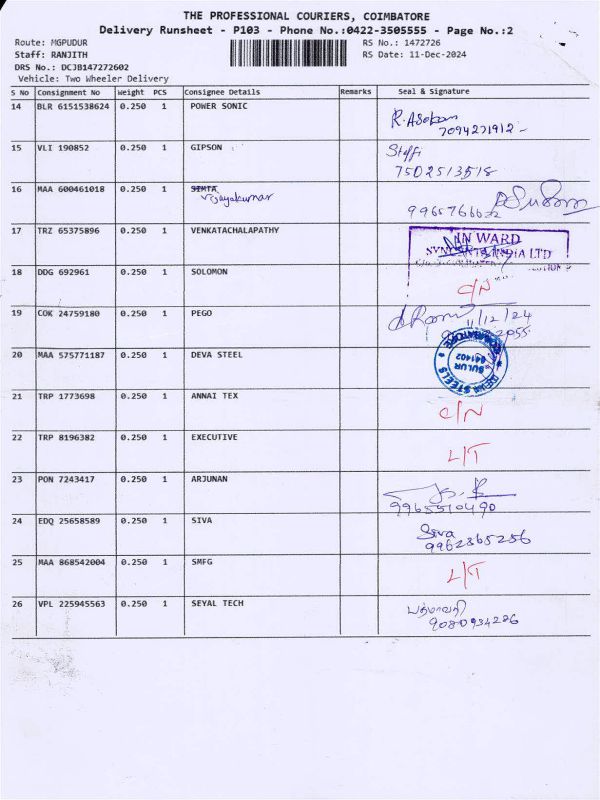 THE PROFESSIONAL COURIERS, COIMBATORE
Delivery Runsheet - P103 - Phone No.:0422-3505555 - Page No.:2
Route: MGPUDUR RS No.: 1472726
Staff: RANJITH RS Date: 11-Dec-2024
DRS No.: DCJB147272602
Vehicle: Two Wheeler Delivery
S No Consignment No Weight PCS Consignee Details Remarks Seal & Signature
14 BLR 6151538624 0.250 1 POWER SONIC
7094271912
15 VLI 190852 0.250 1 GIPSON Staffi
7502513518
16 MAA 600461018 0.250 1 SIMTA
Vijayakumar
17 TRZ 65375896 0.250 1 VENKATACHALAPATHY IN WARD
INDIA LTD
18 DDG 692961 0.250 1 SOLOMON C/N
19 COK 24759180 0.250 1 PEGO 11/12/24
20 MAA 575771187 0.250 1 DEVA STEEL DEVA STEELS COIMBATORE
SULUR
641402
21 TRP 1773698 0.250 1 ANNAI TEX C/N
22 TRP 8196382 0.250 1 EXECUTIVE L/T
23 PON 7243417 0.250 1 ARJUNAN
9965510490
24 EDQ 25658589 0.250 1 SIVA Siva
9962365256
25 MAA 868542004 0.250 1 SMFG L/T
26 VPL 225945563 0.250 1 SEYAL TECH பத்மாவதி
9080934286